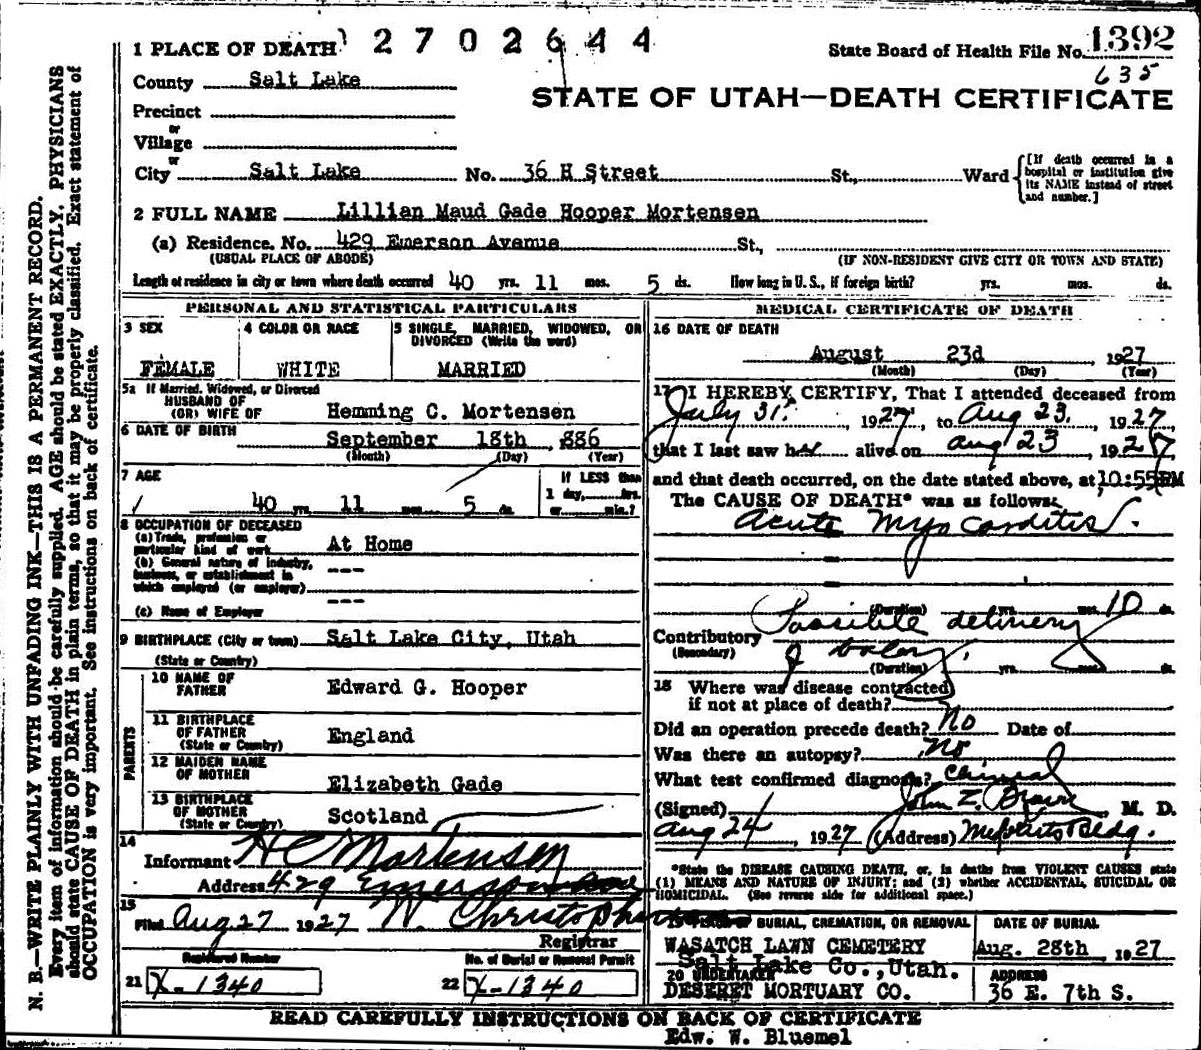 1 PLACE OF DEATH 2702644
State Board of Health File No. 1392
635
County Salt Lake
STATE OF UTAH—DEATH CERTIFICATE
Precinct
or
Village
or
City Salt Lake No. 36 H Street St., Ward
[If death occurred in a hospital or institution give its NAME instead of street and number.]
2 FULL NAME Lillian Maud Gade Hooper Mortensen
(a) Residence. No. 429 Emerson Avenue St.,
(USUAL PLACE OF ABODE) (IF NON-RESIDENT GIVE CITY OR TOWN AND STATE)
Length of residence in city or town where death occurred 40 yrs. 11 mos. 5 ds. How long in U. S., if foreign birth? yrs. mos. ds.
PERSONAL AND STATISTICAL PARTICULARS
3 SEX
FEMALE
4 COLOR OR RACE
WHITE
5 SINGLE, MARRIED, WIDOWED, OR DIVORCED (Write the word)
MARRIED
5a If Married, Widowed, or Divorced
HUSBAND OF
(OR) WIFE OF Hemming C. Mortensen
6 DATE OF BIRTH
September 18th , 886
(Month) (Day) (Year)
7 AGE
40 yrs. 11 mos. 5 ds.
If LESS than
1 day, hrs.
or min.?
8 OCCUPATION OF DECEASED
(a) Trade, profession or particular kind of work At Home
(b) General nature of industry, business, or establishment in which employed (or employer) ---
(c) Name of Employer ---
9 BIRTHPLACE (City or town) Salt Lake City, Utah
(State or Country)
PARENTS
10 NAME OF FATHER Edward G. Hooper
11 BIRTHPLACE OF FATHER England
(State or Country)
12 MAIDEN NAME OF MOTHER Elizabeth Gade
13 BIRTHPLACE OF MOTHER Scotland
(State or Country)
14
Informant H C Mortensen
Address 429 Emerson Ave
15
Filed Aug 27 1927
Registrar
Registered Number
21 X-1340
No. of Burial or Removal Permit
22 X-1340
MEDICAL CERTIFICATE OF DEATH
16 DATE OF DEATH
August 23d 1927
(Month) (Day) (Year)
17 I HEREBY CERTIFY, That I attended deceased from
July 31. 1927, to Aug 23, 1927
that I last saw her alive on Aug 23 1927
and that death occurred, on the date stated above, at 10:55 PM
The CAUSE OF DEATH* was as follows:
Acute Myocarditis.
(Duration) yrs. mos. 10 ds.
Contributory Possible delivery
(Secondary)
(Duration) yrs. mos. ds.
18 Where was disease contracted
if not at place of death?
Did an operation precede death? No Date of
Was there an autopsy? No
What test confirmed diagnosis? Clinical
(Signed) John Z. Brown M. D.
Aug 24, 1927 (Address) Bldg.
*State the DISEASE CAUSING DEATH, or, in deaths from VIOLENT CAUSES state
(1) MEANS AND NATURE OF INJURY; and (2) whether ACCIDENTAL, SUICIDAL OR
HOMICIDAL. (See reverse side for additional space.)
19 PLACE OF BURIAL, CREMATION, OR REMOVAL
WASATCH LAWN CEMETERY
Salt Lake Co., Utah.
DATE OF BURIAL
Aug. 28th , 1927
20 UNDERTAKER
DESERET MORTUARY CO.
ADDRESS
36 E. 7th S.
READ CAREFULLY INSTRUCTIONS ON BACK OF CERTIFICATE
Edw. W. Bluemel
N. B.—WRITE PLAINLY WITH UNFADING INK—THIS IS A PERMANENT RECORD.
Every item of information should be carefully supplied. AGE should be stated EXACTLY. PHYSICIANS
should state CAUSE OF DEATH in plain terms, so that it may be properly classified. Exact statement of
OCCUPATION is very important. See instructions on back of certificate.